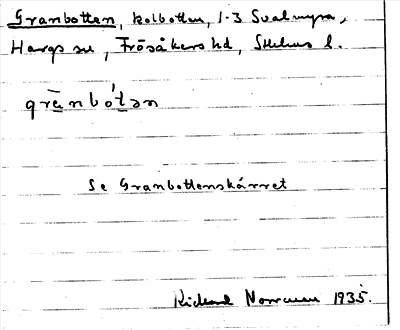 Granbotten, kolbotten, 1-3 Svalmyra,
Hargs sn, Frösåkers hd, Sthlms l.
gränbótan
Se Granbottenskärret
Rickard Norrman 1935.